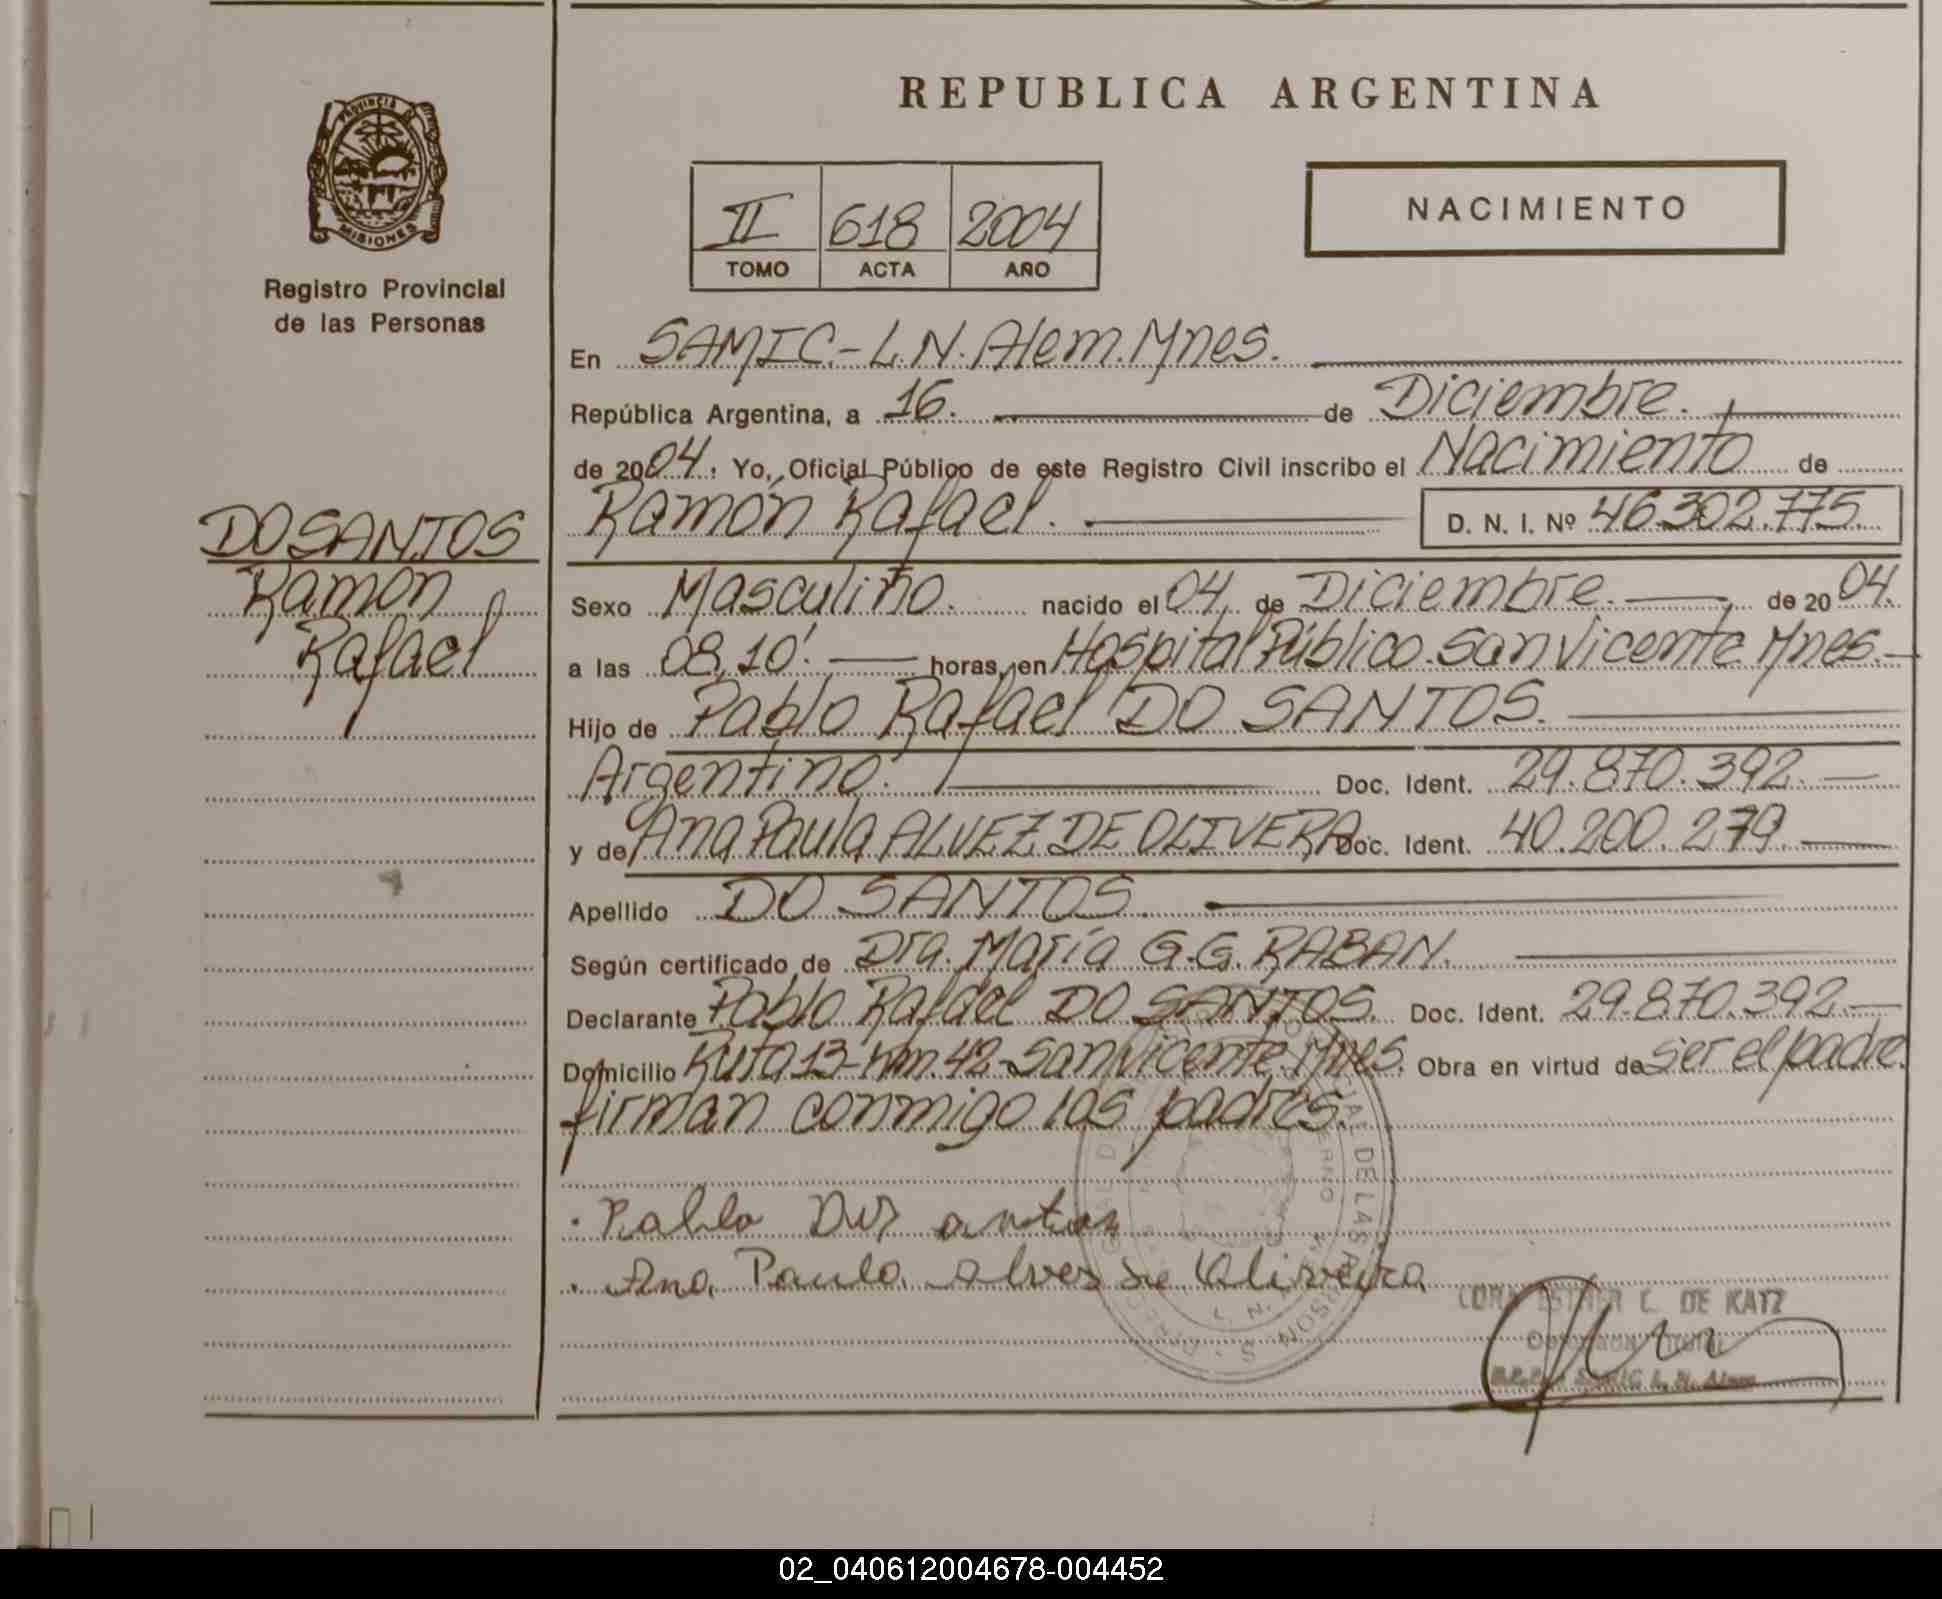 REPUBLICA ARGENTINA
PROVINCIA DE
MISIONES
Registro Provincial
de las Personas
II 618 2004
TOMO ACTA AÑO
NACIMIENTO
En SAMIC.-L.N.Alem.Mnes.
República Argentina, a 16. de Diciembre.
de 2004. Yo, Oficial Público de este Registro Civil inscribo el Nacimiento de
Ramón Rafael. D. N. I. Nº 46.302.775.
DO SANTOS
Ramón
Rafael
Sexo Masculino. nacido el 04 de Diciembre. de 2004.
a las 08,10'. horas, en Hospital Público. San Vicente Mnes.
Hijo de Pablo Rafael DO SANTOS.
Argentino. Doc. Ident. 29.870.392.
y de Ana Paula ALVEZ DE OLIVERA Doc. Ident. 40.200.279.
Apellido DO SANTOS.
Según certificado de Dra. María G.G. RABAN.
Declarante Pablo Rafael DO SANTOS. Doc. Ident. 29.870.392
Domicilio Ruta 13-Km.42-San Vicente.Mnes. Obra en virtud de ser el padre.
firman conmigo los padres.
Pablo
Ana Paula Alves de Oliveira
DE KATZ
02_040612004678-004452